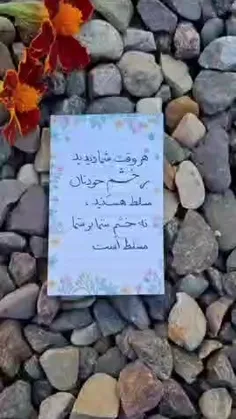 هر وقت شما دیدید
بر خشم خودتان
مسلط هستید ،
نه خشم شما بر شما
مسلط است